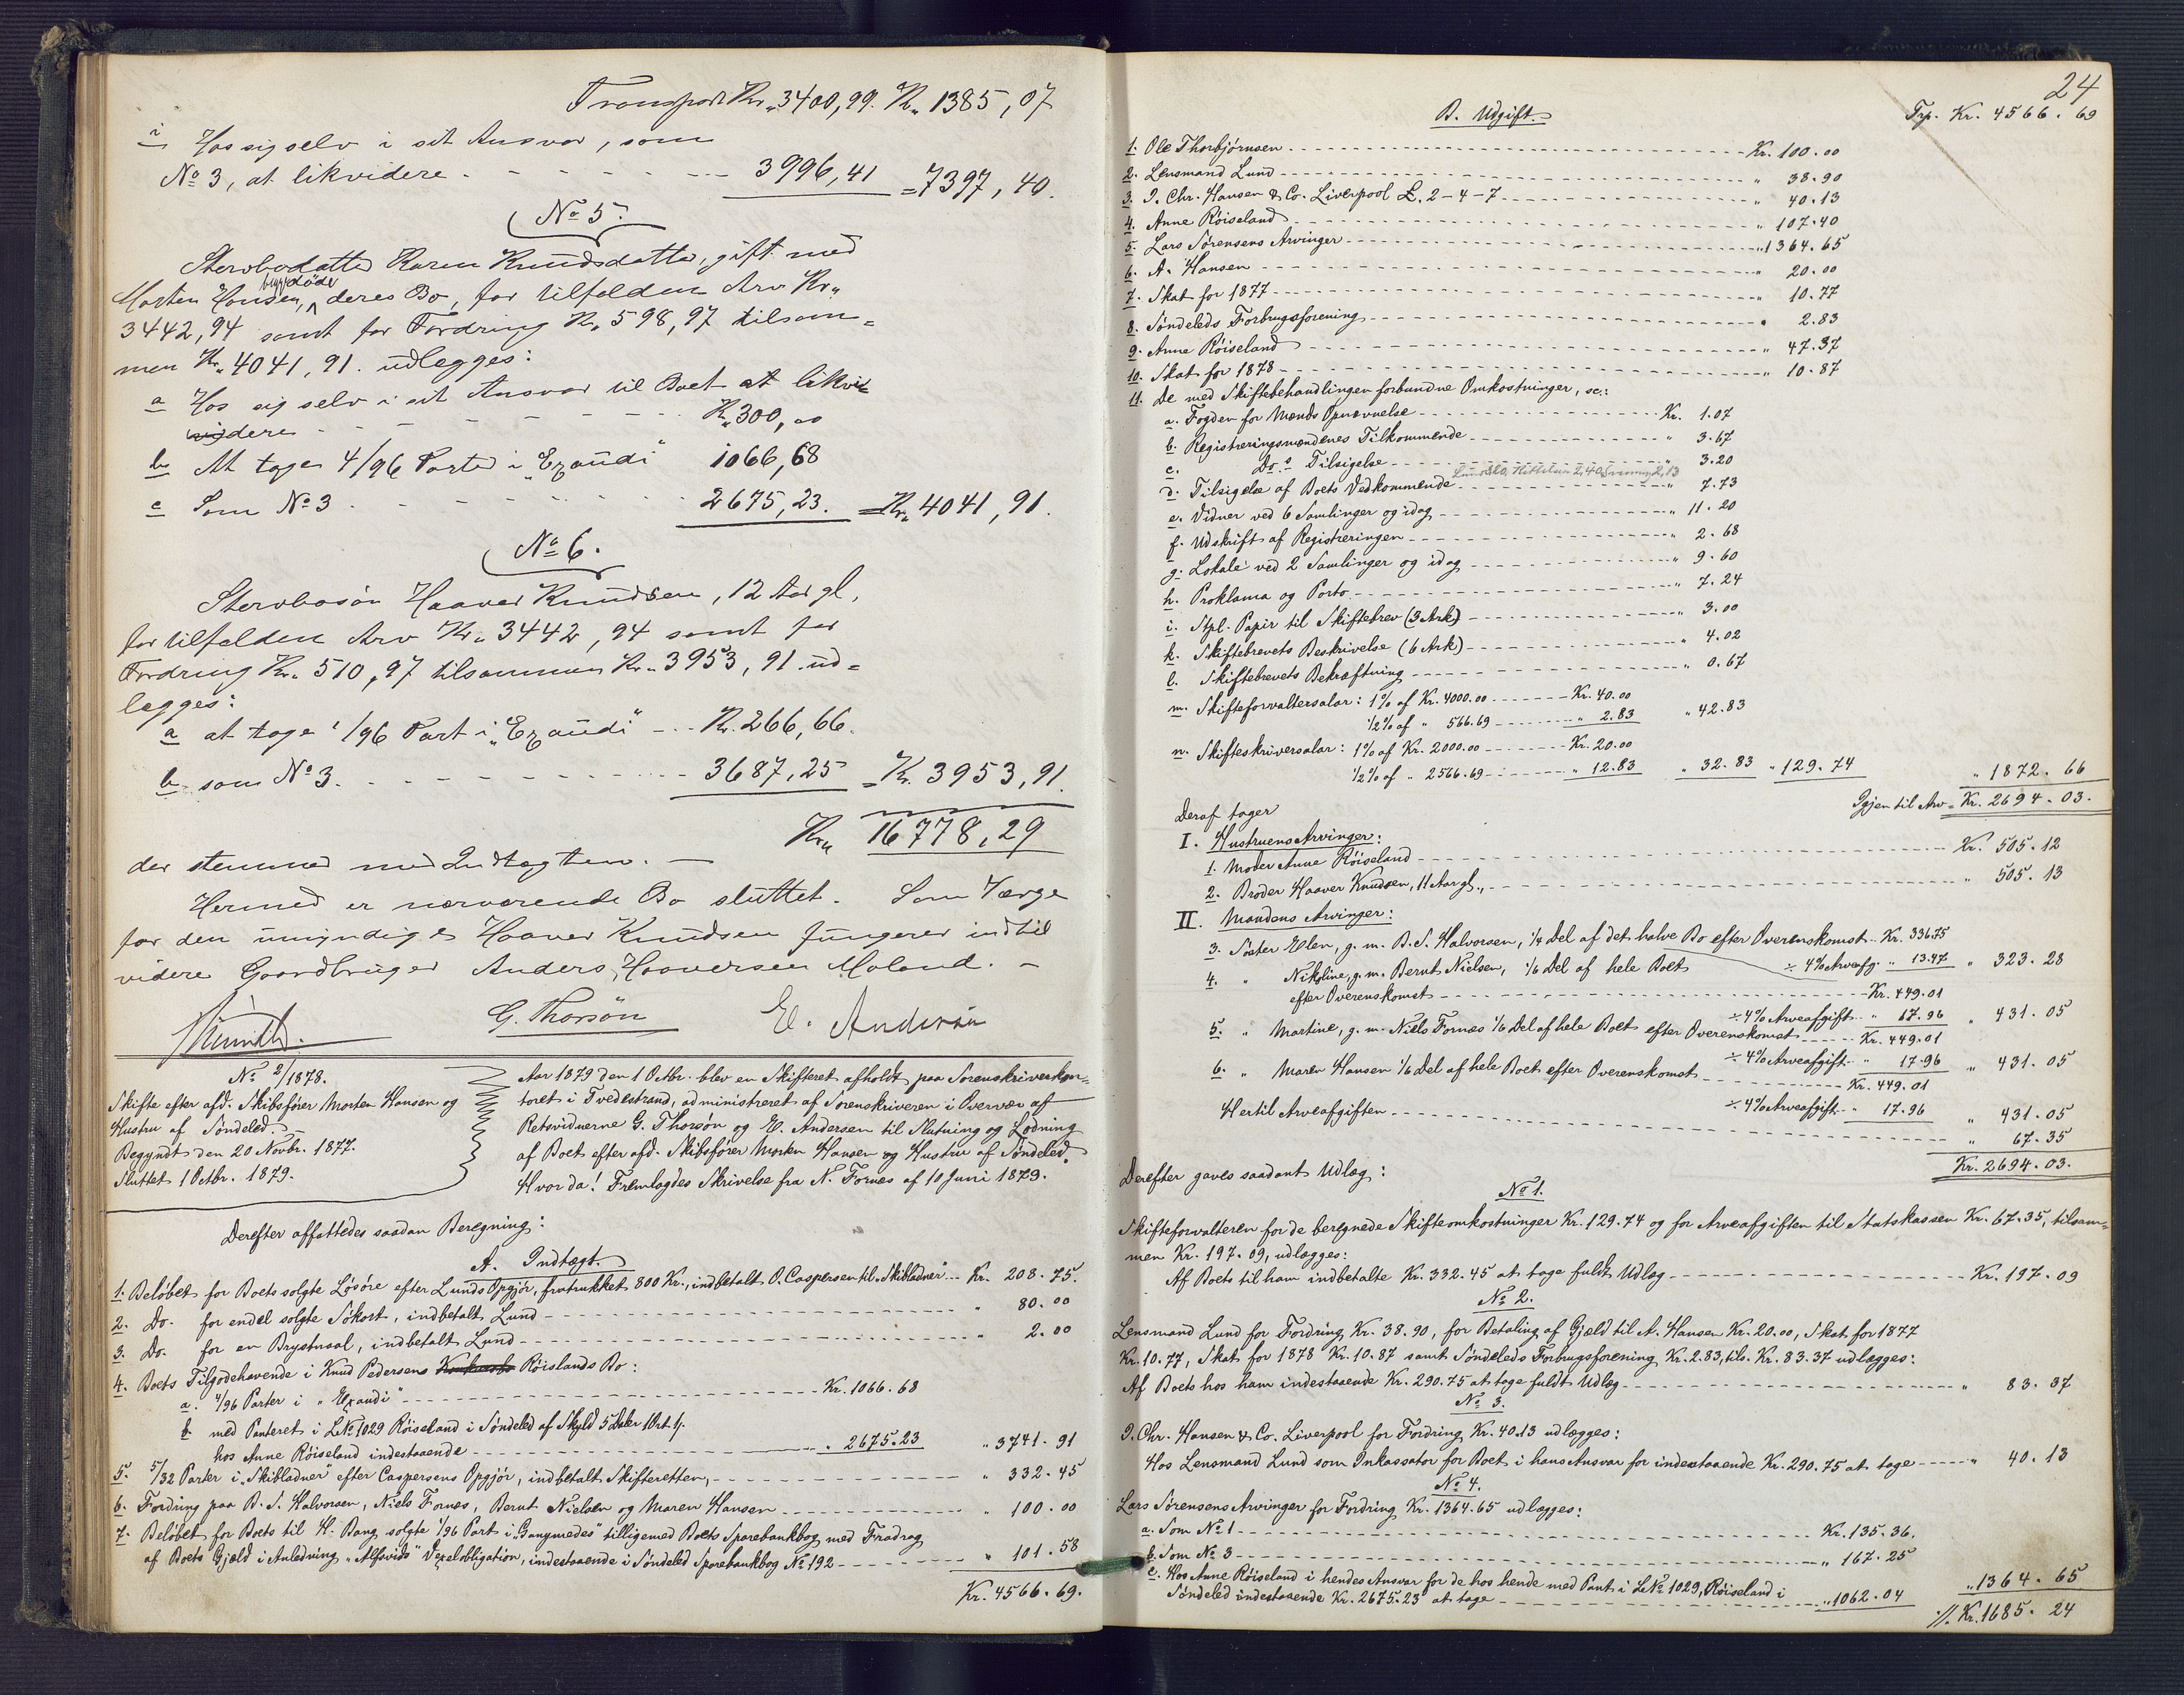 Transport Kr. 3400,99. Kr. 1385,07
i Hos sig selv i sit Ansvar, som
No 3, at likvidere - - - 3996,41 = 7397,40.
No 5.
Stervbodatter Karen Knudsdatter, gift med
Morten Hansen, begge døde deres Bo, for tilfalden Arv Kr.
3442,94 samt for Fordring Kr. 598,97 tilsam=
men Kr. 4041,91. udlegges:
a Hos sig selv i sit Ansvar til Boet at likvi
dere - - - Kr. 300,00
b At tage 4/96 Parter i "Exaudi" 1066,68
c Som No 3 - - - 2675,23. = Kr. 4041,91.
No 6.
Stervbosøn Haaver Knudsen, 12 Aar gl,
for tilfalden Arv Kr. 3442,94 samt for
Fordring Kr. 510,97 tilsammen Kr. 3953,91 ud=
legges:
a at tage 1/96 Part i "Exaudi" - - Kr. 266,66.
b som No 3. - - - 3687,25 = Kr. 3953,91.
Kr. 16778,29
der stemmer med Indtægten. —
Hermed er nærværende Bo sluttet. Som Værge
for den umyndige Haaver Knudsen fungerer indtil
videre Gaardbruger Anders Haaversen Moland. —
G. Thorsön E. Andersen
No 2/1878.
Skifte efter afd. Skibsfører Morten Hansen og
Hustru af Søndeled.
Begyndt den 20 Novbr. 1877.
Sluttet 1 Octbr. 1879.
Aar 1879 den 1 Octbr. blev en Skifteret afholdt paa Sorenskriverkon=
toret i Tvedestrand, administreret af Sorenskriveren i Overvær af
Retsvidnerne G. Thorsön og E. Andersen til Slutning og Lodning
af Boet efter afd. Skibsfører Morten Hansen og Hustru af Søndeled.
Hvor da! Fremlagdes Skrivelse fra N. Fornes af 10 Juni 1879.
Derefter affattedes saadan Beregning:
A. Indtægt.
1. Beløbet for Boets solgte Løsøre efter Lunds Opgjør, fratrukket 800 Kr., indbetalt O. Caspersen til "Skibladner" Kr. 208.75.
2. Do. for endel solgte Søkort, indbetalt Lund - - - " 80.00
3. Do. for en Brystnaal, indbetalt Lund - - - " 2.00
4. Boets Tilgodehavende i Knud Pedersens Røislands Bo:
a. 4/96 Parter i "Exaudi" - - - Kr. 1066.68
b. med Panteret i L No 1029 Røiseland i Søndeled af Skyld 5 Daler 1 Ort 1/.
hos Anne Røiseland indestaaende - - - " 2675.23 " 3741.91
5. 5/32 Parter i "Skibladner" efter Caspersens Opgjør, indbetalt Skifteretten, - - - " 332.45
6. Fordring paa B. S. Halvorsen, Niels Fornes, Bernt Nielsen og Maren Hansen - - - " 100.00
7. Beløbet for Boets til H. Bang solgte 1/96 Part i "Ganymedes" tilligemed Boets Sparebankbog med Fradrag
af Boets Gjæld i Anledning "Alfsvids" Vexelobligation, indestaaende i Søndeled Sparebankbog No 192 - - - " 101.58
Kr. 4566.69.
24
B. Udgift. Trp. Kr. 4566.69
1. Ole Thorbjørnsen - - - Kr. 100.00
2. Lensmand Lund - - - " 38.90
3. I. Chr. Hansen & Co. Liverpool £. 2-4-7 - - - " 40.13
4. Anne Røiseland - - - " 107.40
5. Lars Sørensens Arvinger - - - " 1364.65
6. A. Hansen - - - " 20.00
7. Skat for 1877 - - - " 10.77
8. Søndeleds Forbrugsforening - - - " 2.83
9. Anne Røiseland - - - " 47.37
10. Skat for 1878 - - - " 10.87
11. De med Skiftebehandlingen forbundne Omkostninger, sc:
a. Fogden for Mænds Opnævnelse - - - Kr. 1.07
b. Registreringsmændenes Tilkommende - - - " 3.67
c. Do.s Tilsigelse - - - " 3.20
d. Tilsigelse af Boets Vedkommende - - - " 7.73
e. Vidner ved 6 Samlinger og idag - - - " 11.20
f. Udskrift af Registreringen - - - " 2.68
g. Lokale ved 2 Samlinger og idag - - - " 9.60
h. Proklama og Porto - - - " 7.24
i. Stpl. Papir til Skiftebrev (3 Ark) - - - " 3.00
k. Skiftebrevets Beskrivelse (6 Ark) - - - " 4.02
l. Skiftebrevets Bekræftning - - - " 0.67
m. Skifteforvaltersalar: 1% af Kr. 4000.00 - - - Kr. 40.00
1/2% af " 566.69 - - - " 2.83 " 42.83
n. Skifteskriversalar: 1% af Kr. 2000.00 - - - Kr. 20.00
1/2% af " 2566.69 - - - " 12.83 " 32.83 " 129.74 " 1872.66
Igjen til Arv = Kr. 2694.03.
Deraf tager
I. Hustruens Arvinger:
1. Moder Anne Røiseland - - - Kr. 505.12
2. Broder Haaver Knudsen, 11 Aar gl., - - - " 505.13
II. Mandens Arvinger:
3. Søster Elen, g. m. B. S. Halvorsen, 1/4 Del af det halve Bo efter Overenskomst - Kr. 336.75
÷ 4% Arveafg. " 13.47 " 323.28
4. " Nikoline, g. m. Bernt Nielsen, 1/6 Del af hele Boet
efter Overenskomst - - - Kr. 449.01
÷ 4% Arveafgift - " 17.96 " 431.05
5. " Martine, g. m. Niels Fornæs 1/6 Del af hele Boet efter Overenskomst - - - Kr. 449.01
÷ 4% Arveafgift - " 17.96 " 431.05
6. " Maren Hansen 1/6 Del af hele Boet efter Overenskomst - - - Kr. 449.01
÷ 4% Arveafgift - " 17.96 " 431.05
Hertil Arveafgiften - - - " 67.35
Kr. 2694.03.
Derefter gaves saadant Udlæg:
No 1.
Skifteforvalteren for de beregnede Skifteomkostninger Kr. 129.74 og for Arveafgiften til Statskassen Kr. 67.35, tilsam=
men Kr. 197.09, udlægges:
Af Boets til ham indbetalte Kr. 332.45 at tage fuldt Udlæg - - - Kr. 197.09
No 2.
Lensmand Lund for Fordring Kr. 38.90, for Betaling af Gjæld til A. Hansen Kr. 20.00, Skat for 1877
Kr. 10.77, Skat for 1878 Kr. 10.87 samt Søndeleds Forbrugsforening Kr. 2.83, tils. Kr. 83.37 udlægges:
Af Boets hos ham indestaaende Kr. 290.75 at tage fuldt Udlæg - - - " 83.37
No 3.
I. Chr. Hansen & Co. Liverpool for Fordring Kr. 40.13 udlægges:
Hos Lensmand Lund som Inkassator for Boet i hans Ansvar for indestaaende Kr. 290.75 at tage - - - " 40.13
No 4.
Lars Sørensens Arvinger for Fordring Kr. 1364.65 udlægges:
a. Som No 1 - - - Kr. 135.36.
b. Som No 3 - - - " 167.25
c. Hos Anne Røiseland i hendes Ansvar for de hos hende med Pant i L No 1029, Røiseland i
Søndeled indestaaende Kr. 2675.23 at tage - - - " 1062.04 " 1364.65
//. Kr. 1685.24